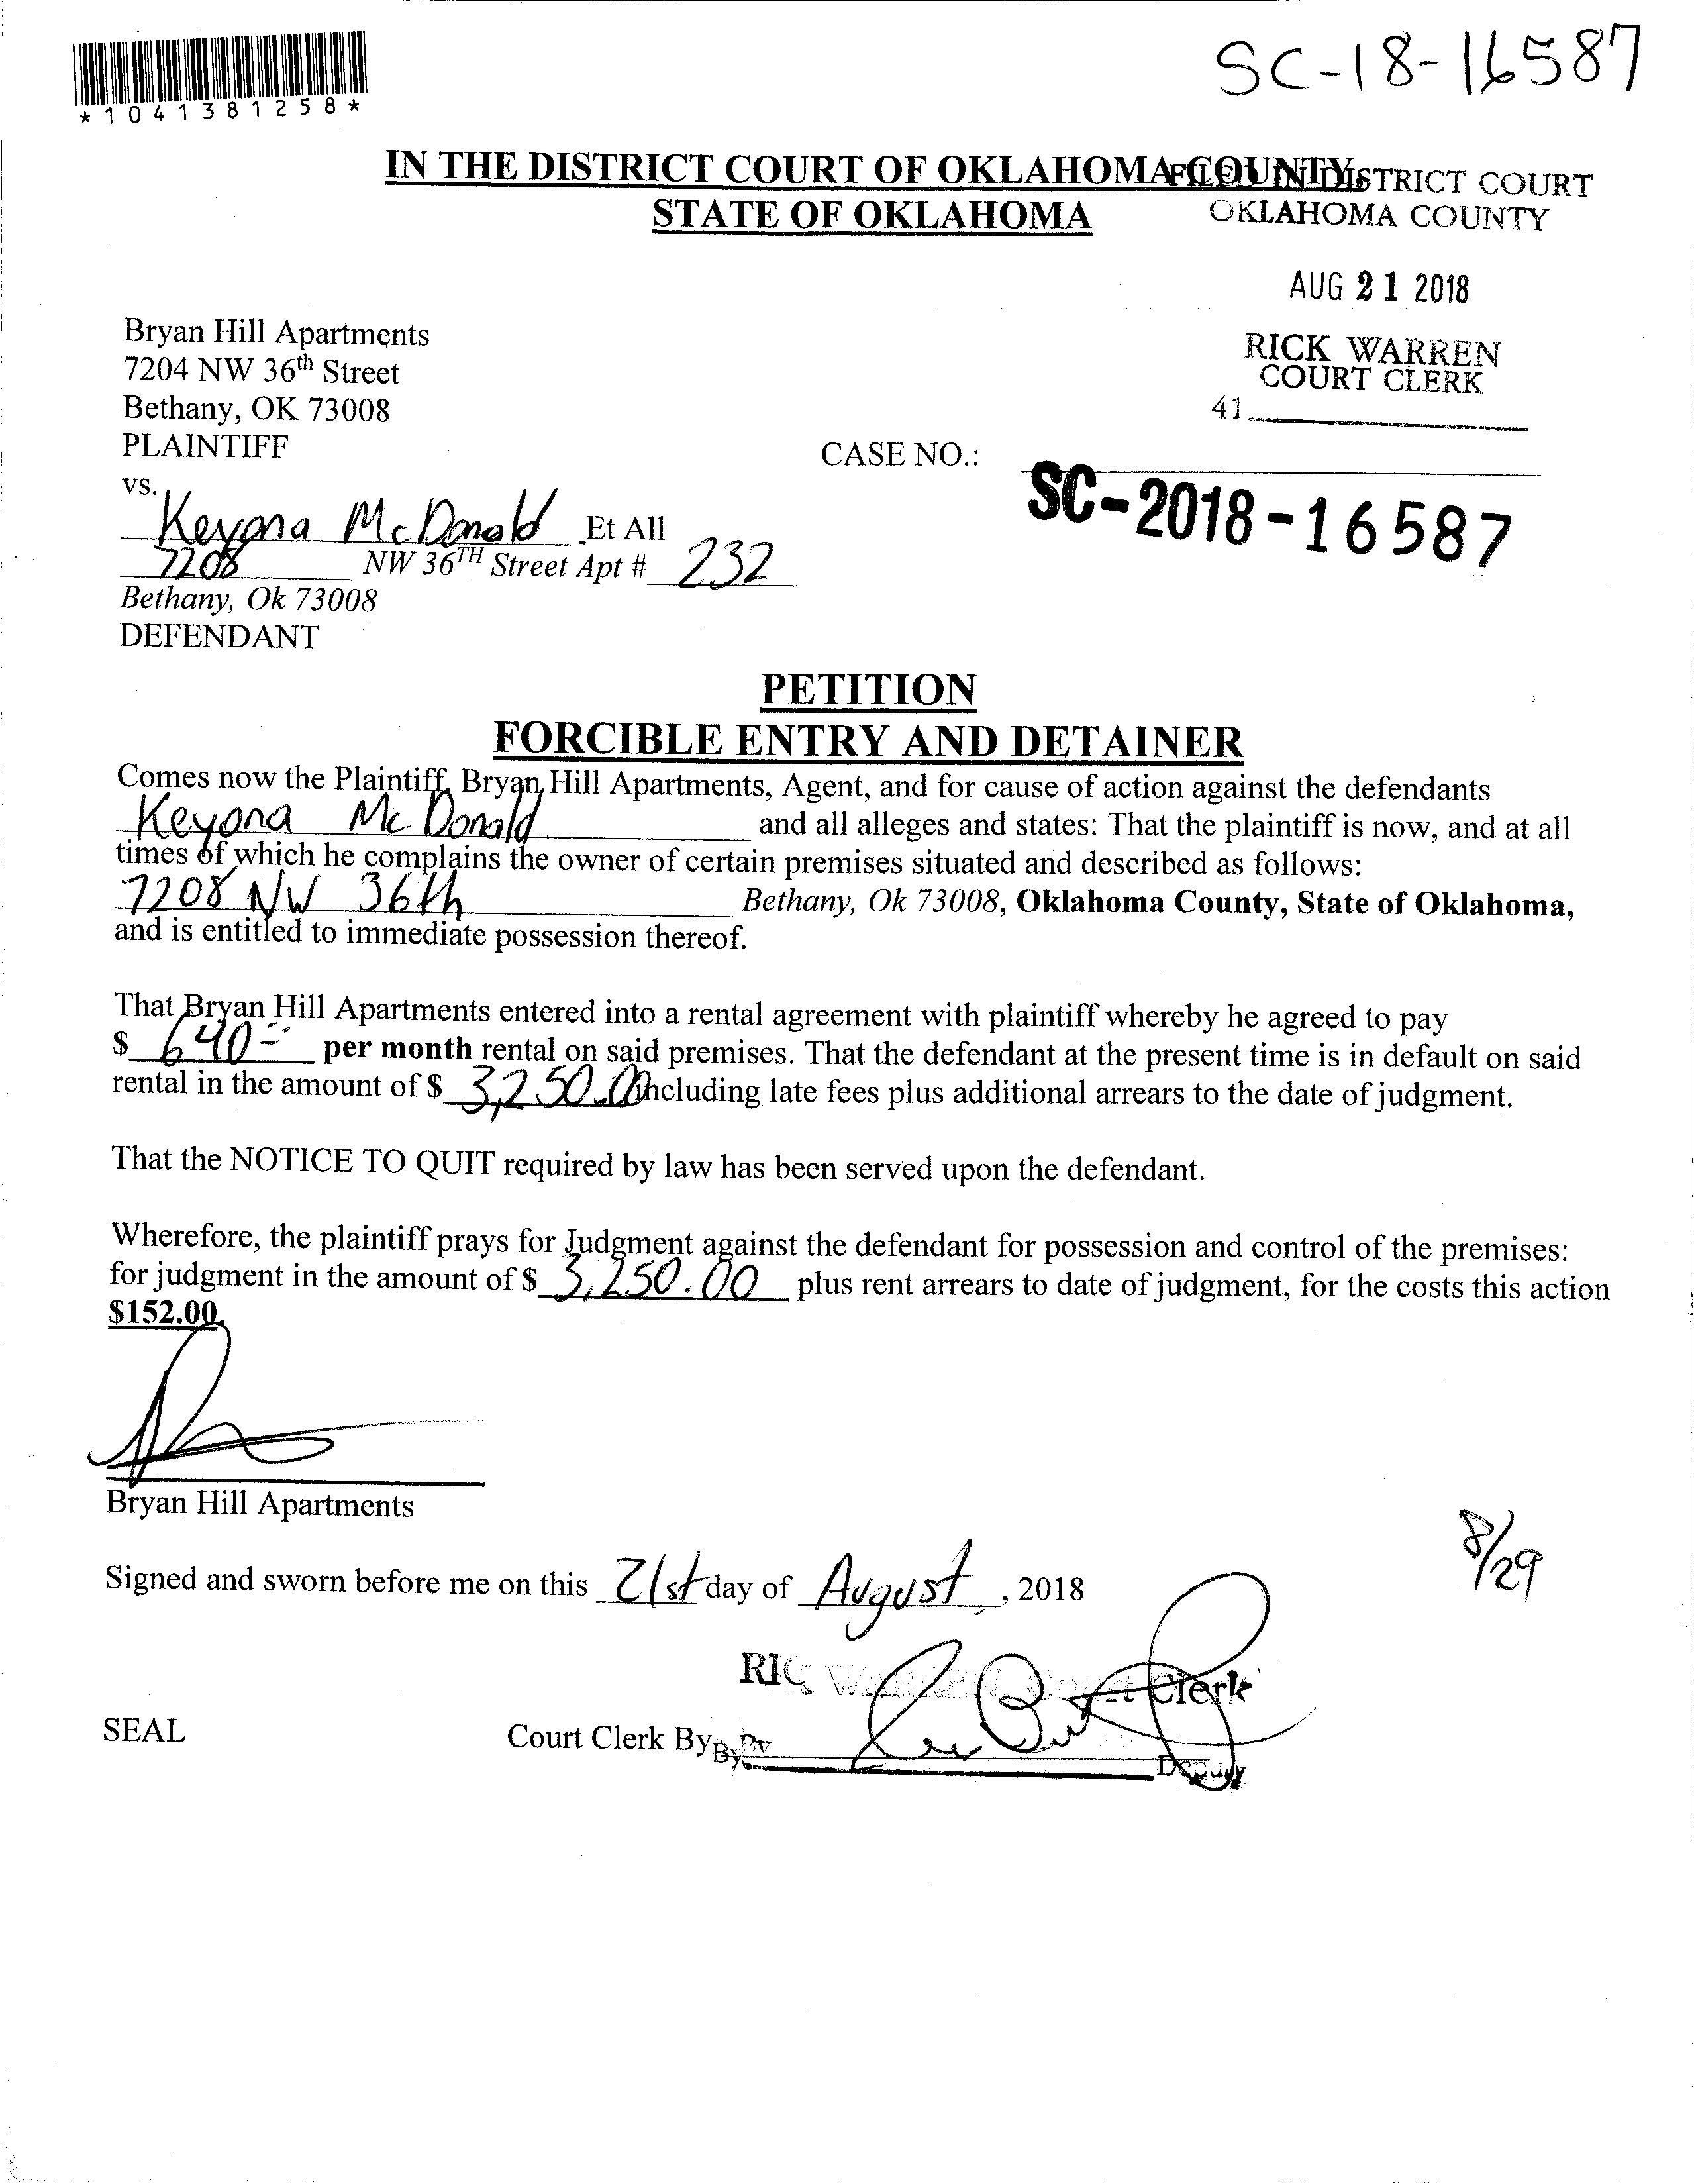 *1041381258*
SC-18-16587
IN THE DISTRICT COURT OF OKLAHOMA COUNTY
STATE OF OKLAHOMA
FILED IN DISTRICT COURT
OKLAHOMA COUNTY
AUG 21 2018
RICK WARREN
COURT CLERK
41
Bryan Hill Apartments
7204 NW 36th Street
Bethany, OK 73008
PLAINTIFF
CASE NO.:
SC-2018-16587
vs.
Keyona McDonald Et All
7208 NW 36TH Street Apt # 232
Bethany, Ok 73008
DEFENDANT
PETITION
FORCIBLE ENTRY AND DETAINER
Comes now the Plaintiff, Bryan Hill Apartments, Agent, and for cause of action against the defendants
Keyona McDonald and all alleges and states: That the plaintiff is now, and at all
times of which he complains the owner of certain premises situated and described as follows:
7208 NW 36th Bethany, Ok 73008, Oklahoma County, State of Oklahoma,
and is entitled to immediate possession thereof.
That Bryan Hill Apartments entered into a rental agreement with plaintiff whereby he agreed to pay
$ 640 per month rental on said premises. That the defendant at the present time is in default on said
rental in the amount of $ 3,250.00 including late fees plus additional arrears to the date of judgment.
That the NOTICE TO QUIT required by law has been served upon the defendant.
Wherefore, the plaintiff prays for Judgment against the defendant for possession and control of the premises:
for judgment in the amount of $ 3,250.00 plus rent arrears to date of judgment, for the costs this action
$152.00.
Bryan Hill Apartments
8/29
Signed and sworn before me on this 21st day of August, 2018
RICK WARREN, Court Clerk
SEAL
Court Clerk By By By
Deputy